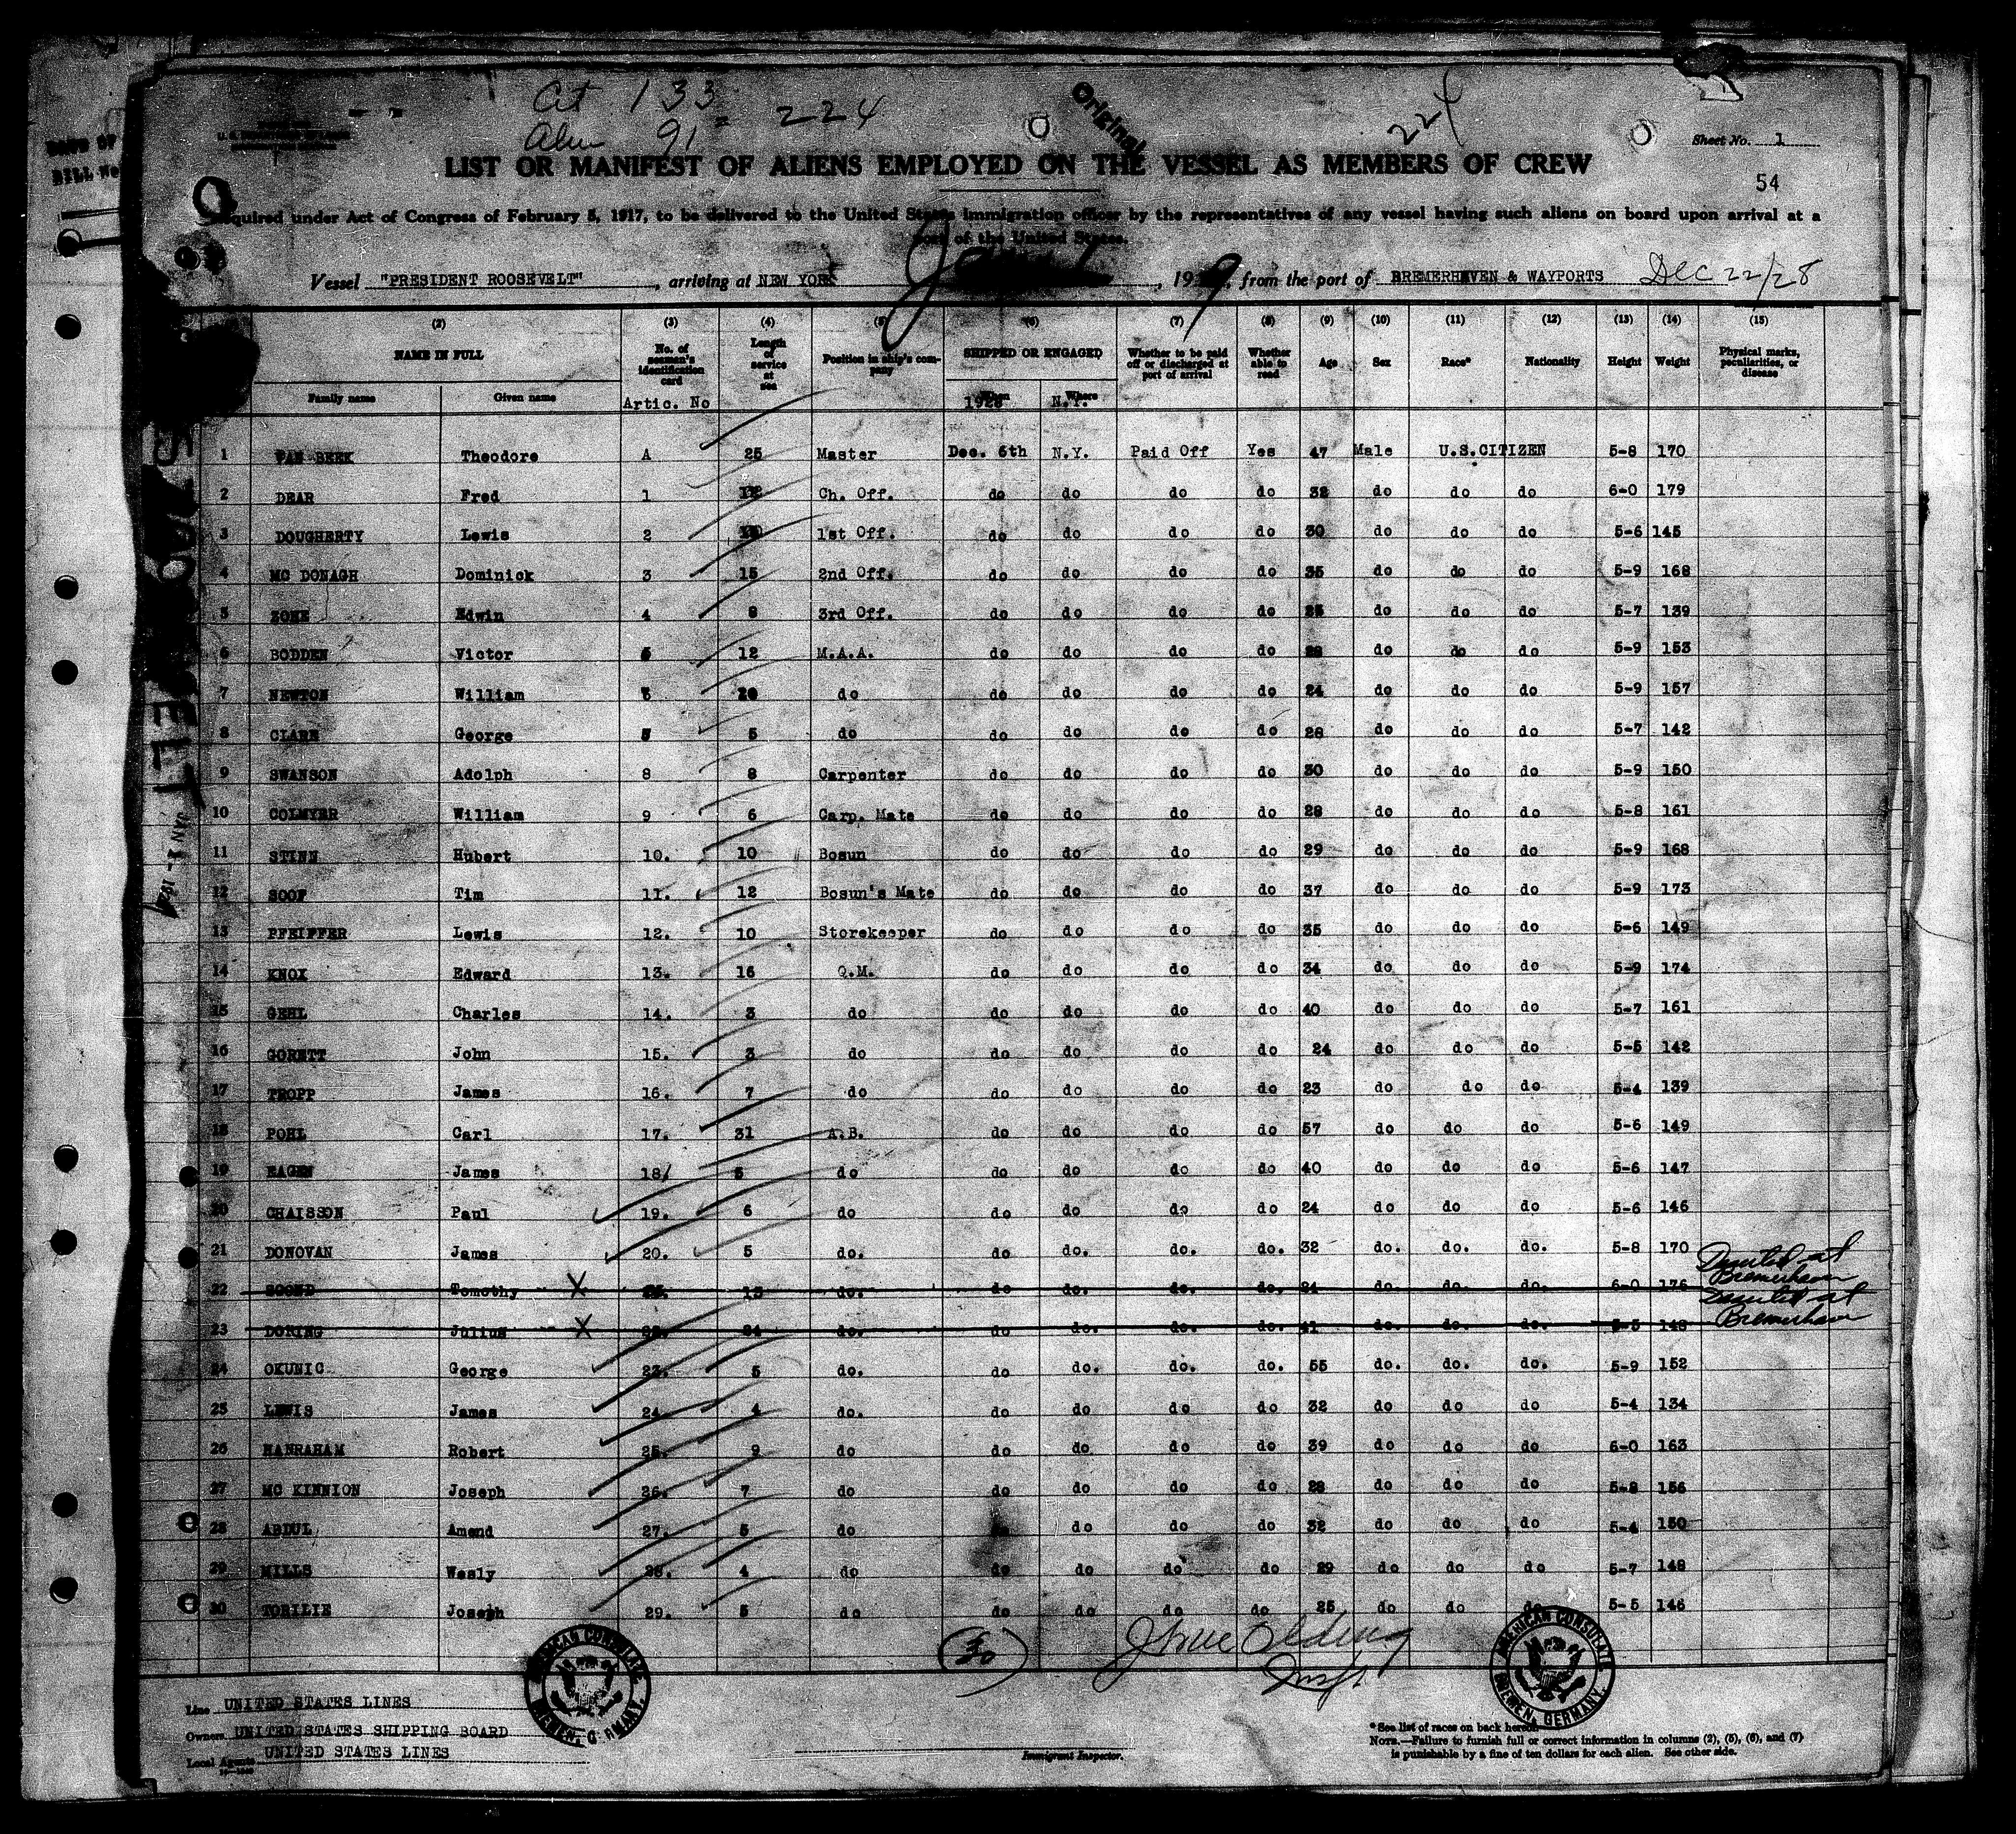 Cit 133
Alien 91 = 224
Original
224
Sheet No. 1
LIST OR MANIFEST OF ALIENS EMPLOYED ON THE VESSEL AS MEMBERS OF CREW
54
Required under Act of Congress of February 5, 1917, to be delivered to the United States immigration officer by the representatives of any vessel having such aliens on board upon arrival at a
port of the United States.
Vessel "PRESIDENT ROOSEVELT", arriving at NEW YORK, 1929, from the port of BREMERHAVEN & WAYPORTS Dec 22/28
(2) (3) (4) (5) (6) (7) (8) (9) (10) (11) (12) (13) (14) (15)
NAME IN FULL Family name Given name No. of seaman's identification card Artic. No Length of service at sea Position in ship's company SHIPPED OR ENGAGED When 1928 Where N.Y. Whether to be paid off or discharged at port of arrival Whether able to read Age Sex Race* Nationality Height Weight Physical marks, peculiarities, or disease
1 VAN BEEK Theodore A 25 Master Dec. 6th N.Y. Paid Off Yes 47 Male U.S.CITIZEN 5-8 170
2 DEAR Fred 1 Ch. Off. do do do do 32 do do do 6-0 179
3 DOUGHERTY Lewis 2 1st Off. do do do do 30 do do do 5-6 145
4 MC DONAGH Dominick 3 15 2nd Off. do do do do 35 do do do 5-9 168
5 Edwin 4 8 3rd Off. do do do do do do do 5-7 139
6 BODDEN Victor 5 12 M.A.A. do do do do do do do 5-9 153
7 NEWTON William 20 do do do do do 24 do do do 5-9 157
8 CLARK George 5 do do do do do 28 do do do 5-7 142
9 SWANSON Adolph 8 8 Carpenter do do do do 30 do do do 5-9 150
10 COLMYER William 9 6 Carp. Mate do do do do 28 do do do 5-8 161
11 STINN Hubert 10. 10 Bosun do do do do 29 do do do 5-9 168
12 SOOF Tim 11. 12 Bosun's Mate do do do do 37 do do do 5-9 173
13 PFEIFFER Lewis 12. 10 Storekeeper do do do do 35 do do do 5-6 149
14 KNOX Edward 13. 16 Q.M. do do do do 34 do do do 5-9 174
15 GEHL Charles 14. 3 do do do do do 40 do do do 5-7 161
16 GORNTT John 15. 3 do do do do do 24 do do do 5-5 142
17 TROPP James 16. 7 do do do do do 23 do do do 5-4 139
18 POHL Carl 17. 31 A.B. do do do do 57 do do do 5-6 149
19 EAGEN James 18/ 5 do do do do do 40 do do do 5-6 147
20 CHAISSON Paul 19. 6 do do do do do 24 do do do 5-6 146
21 DONOVAN James 20. 5 do. do do. do. do. 32 do. do. do. 5-8 170
22 Tomothy X do. do do. do. do. do. do. do. 6-0 176 Deserted at Bremerhaven
23 DORING Julius X do. do do. do. do. 41 do. do. do. 5-5 148 Deserted at Bremerhaven
24 OKUNIC George 23. 5 do. do do. do. do. 55 do. do. do. 5-9 152
25 LEWIS James 24. 4 do. do do do do 32 do do do 5-4 134
26 HANRAHAM Robert 25. 9 do do do do do 39 do do do 6-0 163
27 MC KINNION Joseph 26. 7 do do do do do 28 do do do 5-8 156
28 ABDUL Amend 27. 5 do do do do 32 do do do 5-4 150
29 MILLS Wesly 28. 4 do do do do do 29 do do do 5-7 148
30 TORILIE Joseph 29. 5 do do do do do 25 do do do 5-5 146
30
Insp
AMERICAN CONSULATE BREMEN, GERMANY.
AMERICAN CONSULATE BREMEN, GERMANY.
Line UNITED STATES LINES
Owners UNITED STATES SHIPPING BOARD
Local Agents UNITED STATES LINES
Immigrant Inspector.
*See list of races on back hereof.
NOTE.—Failure to furnish full or correct information in columns (2), (5), (6), and (7)
is punishable by a fine of ten dollars for each alien. See other side.